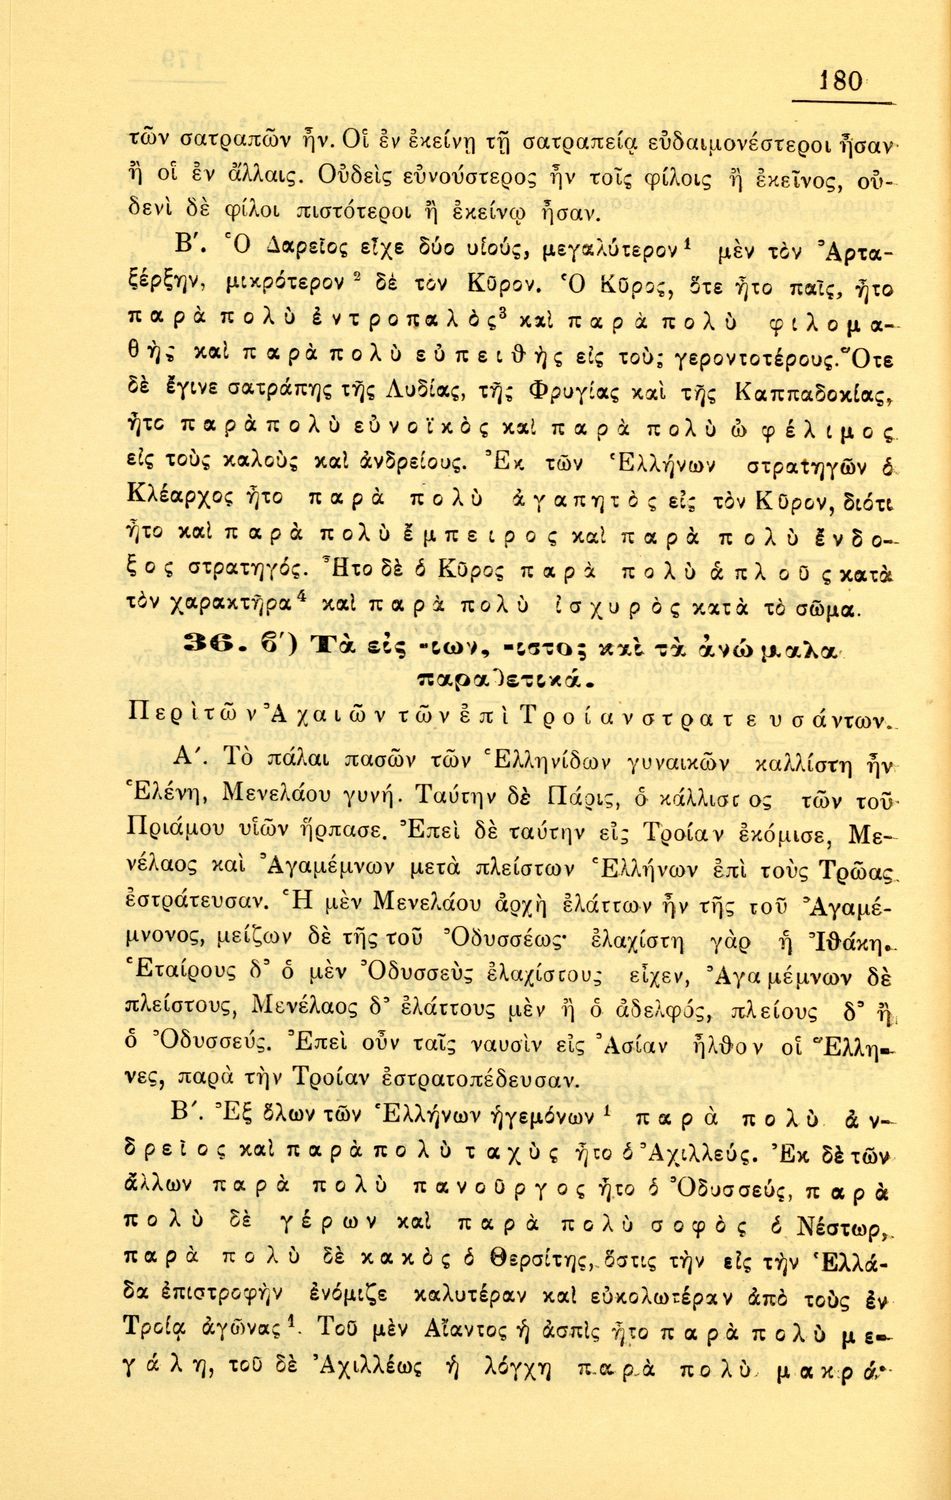 180
τῶν σατραπῶν ἦν. Οἱ ἐν ἐκείνῃ τῇ σατραπείᾳ εὐδαιμονέστεροι ἦσαν
ἢ οἱ ἐν ἄλλαις. Οὐδεὶς εὐνούστερος ἦν τοῖς φίλοις ἢ ἐκεῖνος, οὐ-
δενὶ δὲ φίλοι πιστότεροι ἢ ἐκείνῳ ἦσαν.
Β΄. Ὁ Δαρεῖος εἶχε δύο υἱούς, μεγαλύτερον ¹ μὲν τὸν Ἀρτα-
ξέρξην, μικρότερον ² δὲ τὸν Κῦρον. Ὁ Κῦρος, ὅτε ἦτο παῖς, ἦτο
παρὰ πολὺ ἐντροπαλὸς³ καὶ παρὰ πολὺ φιλομα-
θὴς καὶ παρὰ πολὺ εὐπειθὴς εἰς τοὺς γεροντοτέρους. Ὅτε
δὲ ἔγινε σατράπης τῆς Λυδίας, τῆς Φρυγίας καὶ τῆς Καππαδοκίας,
ἦτο παρὰ πολὺ εὐνοϊκὸς καὶ παρὰ πολὺ ὠφέλιμος
εἰς τοὺς καλοὺς καὶ ἀνδρείους. Ἐκ τῶν Ἑλλήνων στρατηγῶν ὁ
Κλέαρχος ἦτο παρὰ πολὺ ἀγαπητὸς εἰς τὸν Κῦρον, διότι
ἦτο καὶ παρὰ πολὺ ἔμπειρος καὶ παρὰ πολὺ ἔνδο-
ξος στρατηγός. Ἦτο δὲ ὁ Κῦρος παρὰ πολὺ ἁπλοῦς κατὰ
τὸν χαρακτῆρα⁴ καὶ παρὰ πολὺ ἰσχυρὸς κατὰ τὸ σῶμα.
36. β΄) Τὰ εἰς -ιων, -ιστος καὶ τὰ ἀνώμαλα
παραθετικά.
Περὶ τῶν Ἀχαιῶν τῶν ἐπὶ Τροίαν στρατευσάντων.
Α΄. Τὸ πάλαι πασῶν τῶν Ἑλληνίδων γυναικῶν καλλίστη ἦν
Ἑλένη, Μενελάου γυνή. Ταύτην δὲ Πάρις, ὁ κάλλιστος τῶν τοῦ
Πριάμου υἱῶν ἥρπασε. Ἐπεὶ δὲ ταύτην εἰς Τροίαν ἐκόμισε, Με-
νέλαος καὶ Ἀγαμέμνων μετὰ πλείστων Ἑλλήνων ἐπὶ τοὺς Τρῶας
ἐστράτευσαν. Ἡ μὲν Μενελάου ἀρχὴ ἐλάττων ἦν τῆς τοῦ Ἀγαμέ-
μνονος, μείζων δὲ τῆς τοῦ Ὀδυσσέως· ἐλαχίστη γὰρ ἡ Ἰθάκη.
Ἑταίρους δ᾽ ὁ μὲν Ὀδυσσεὺς ἐλαχίστους εἶχεν, Ἀγαμέμνων δὲ
πλείστους, Μενέλαος δ᾽ ἐλάττους μὲν ἢ ὁ ἀδελφός, πλείους δ᾽ ἢ
ὁ Ὀδυσσεύς. Ἐπεὶ οὖν ταῖς ναυσὶν εἰς Ἀσίαν ἦλθον οἱ Ἕλλη-
νες, παρὰ τὴν Τροίαν ἐστρατοπέδευσαν.
Β΄. Ἐξ ὅλων τῶν Ἑλλήνων ἡγεμόνων ¹ παρὰ πολὺ ἀν-
δρεῖος καὶ παρὰ πολὺ ταχὺς ἦτο ὁ Ἀχιλλεύς. Ἐκ δὲ τῶν
ἄλλων παρὰ πολὺ πανοῦργος ἦτο ὁ Ὀδυσσεύς, παρὰ
πολὺ δὲ γέρων καὶ παρὰ πολὺ σοφὸς ὁ Νέστωρ,
παρὰ πολὺ δὲ κακὸς ὁ Θερσίτης, ὅστις τὴν εἰς τὴν Ἑλλά-
δα ἐπιστροφὴν ἐνόμιζε καλυτέραν καὶ εὐκολωτέραν ἀπὸ τοὺς ἐν
Τροίᾳ ἀγῶνας¹. Τοῦ μὲν Αἴαντος ἡ ἀσπὶς ἦτο παρὰ πολὺ με-
γάλη, τοῦ δὲ Ἀχιλλέως ἡ λόγχη παρὰ πολὺ μακρά·